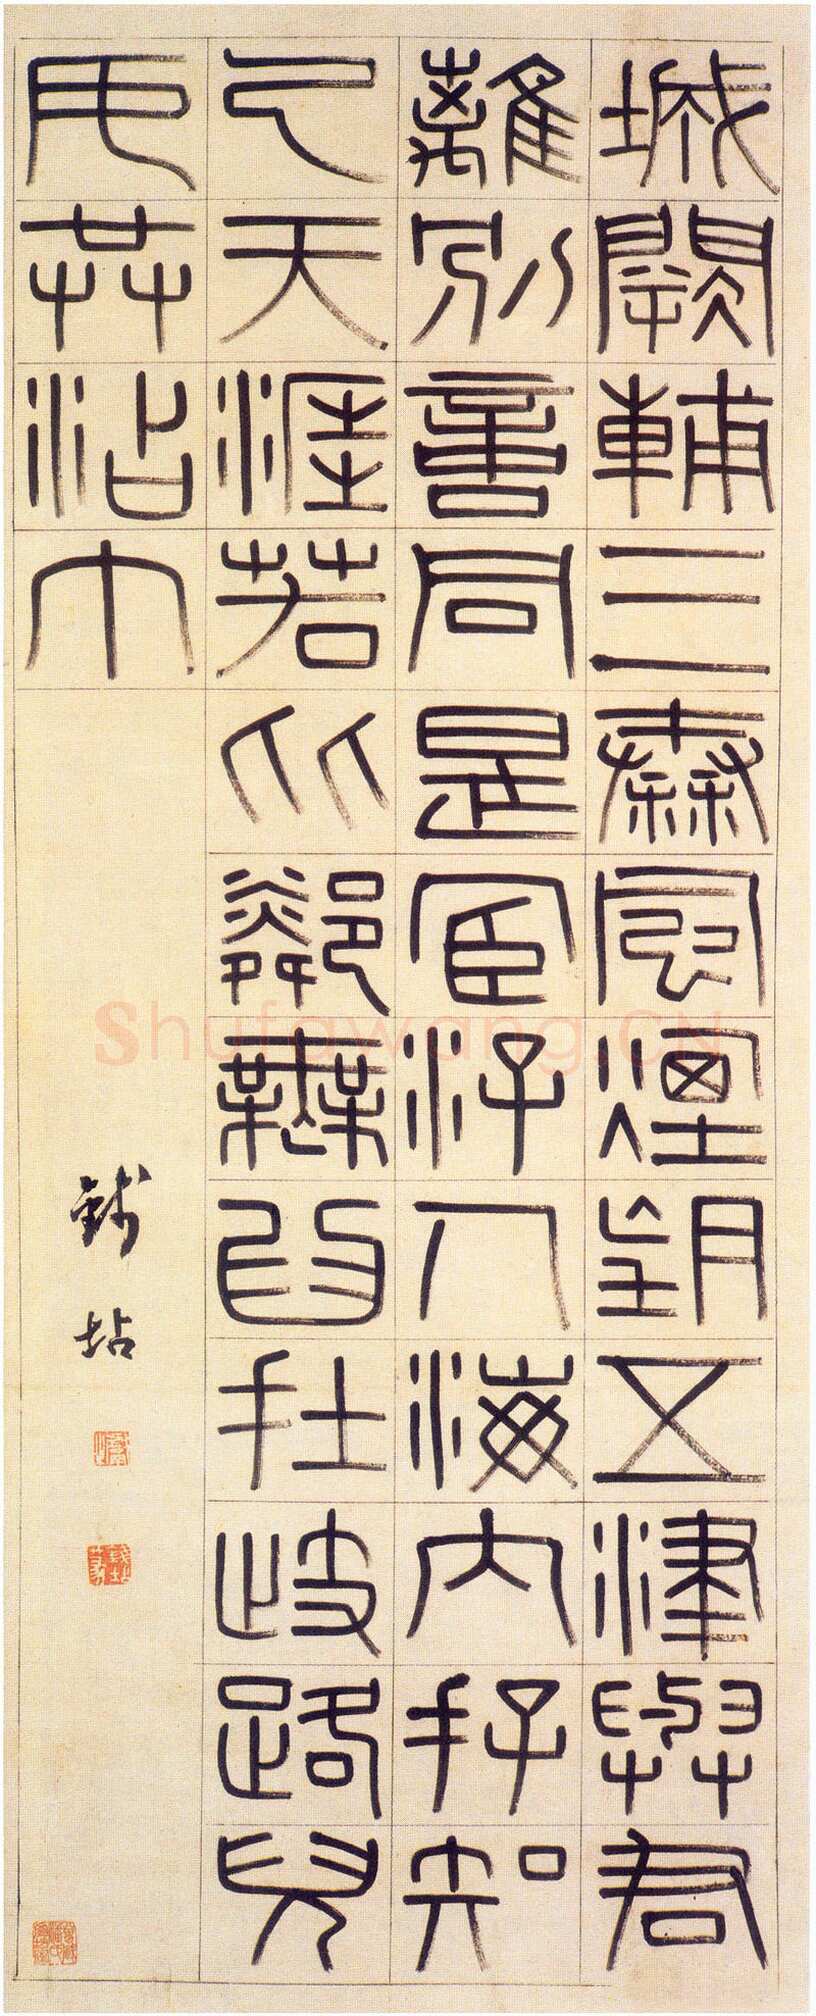 城闕輔三秦風煙望五津與君
離別意同是宦游人海內存知
己天涯若比鄰無為在歧路兒
女共沾巾
錢坫
Shufawang.CN